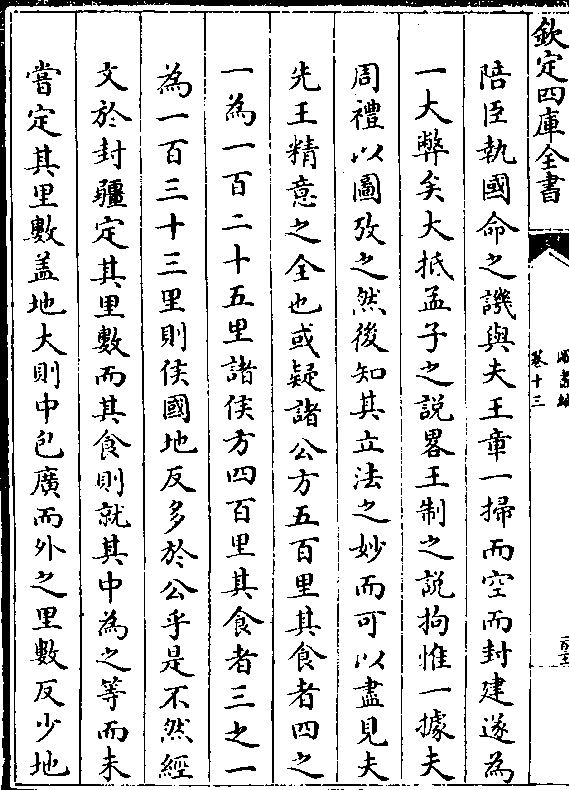 欽定四庫全書
卷十三
陪臣執國命之譏與夫王章一掃而空而封建遂為
一大弊矣大抵孟子之說畧王制之說拘惟一據夫
周禮以圖攷之然後知其立法之妙而可以盡見夫
先王精意之全也或疑諸公方五百里其食者四之
一為一百二十五里諸侯方四百里其食者三之一
為一百三十三里則侯國地反多於公乎是不然經
文於封疆定其里數而其食則就其中為之等而未
嘗定其里數盖地大則中包廣而外之里數反少地